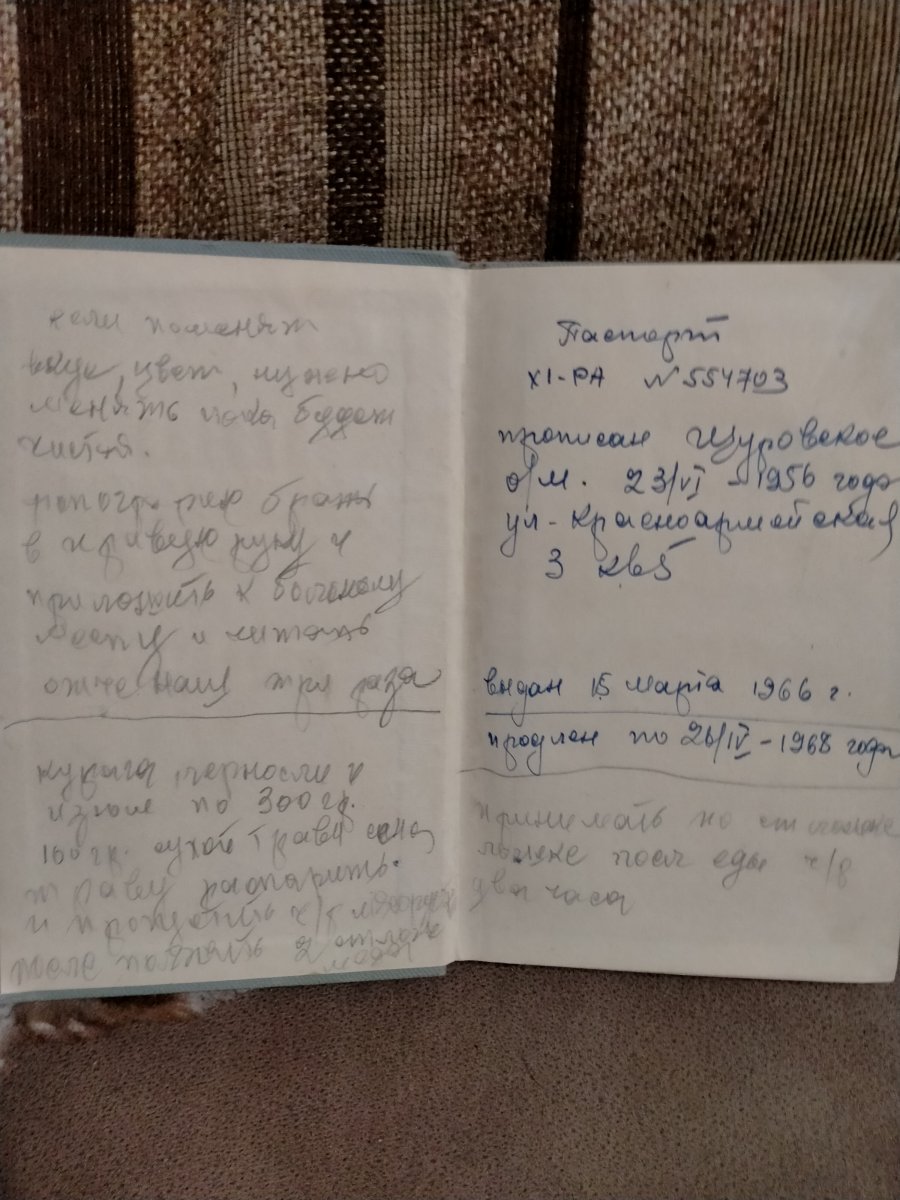 если поменяет
вкус, цвет, нужно
менять пока будет
чистая.
фотографию брать
в правую руку и
приложить к больному
месту и читать
отче наш три раза
курага, чернослив
изюм по 300 гр.
100 гр. сухой травы сена,
траву распарить.
и пропустить ч/з мясоруб
после положить 2 ст ложк
меда
Паспорт
XI-РА №554703
прописан Щуровское
о/м. 23/VI - 1956 года
ул-Красноармейская
3 кв 5
выдан 15 марта 1966 г.
продлен по 26/IV - 1968 года
принимать по ст столовой
ложке посл еды ч/з
два часа